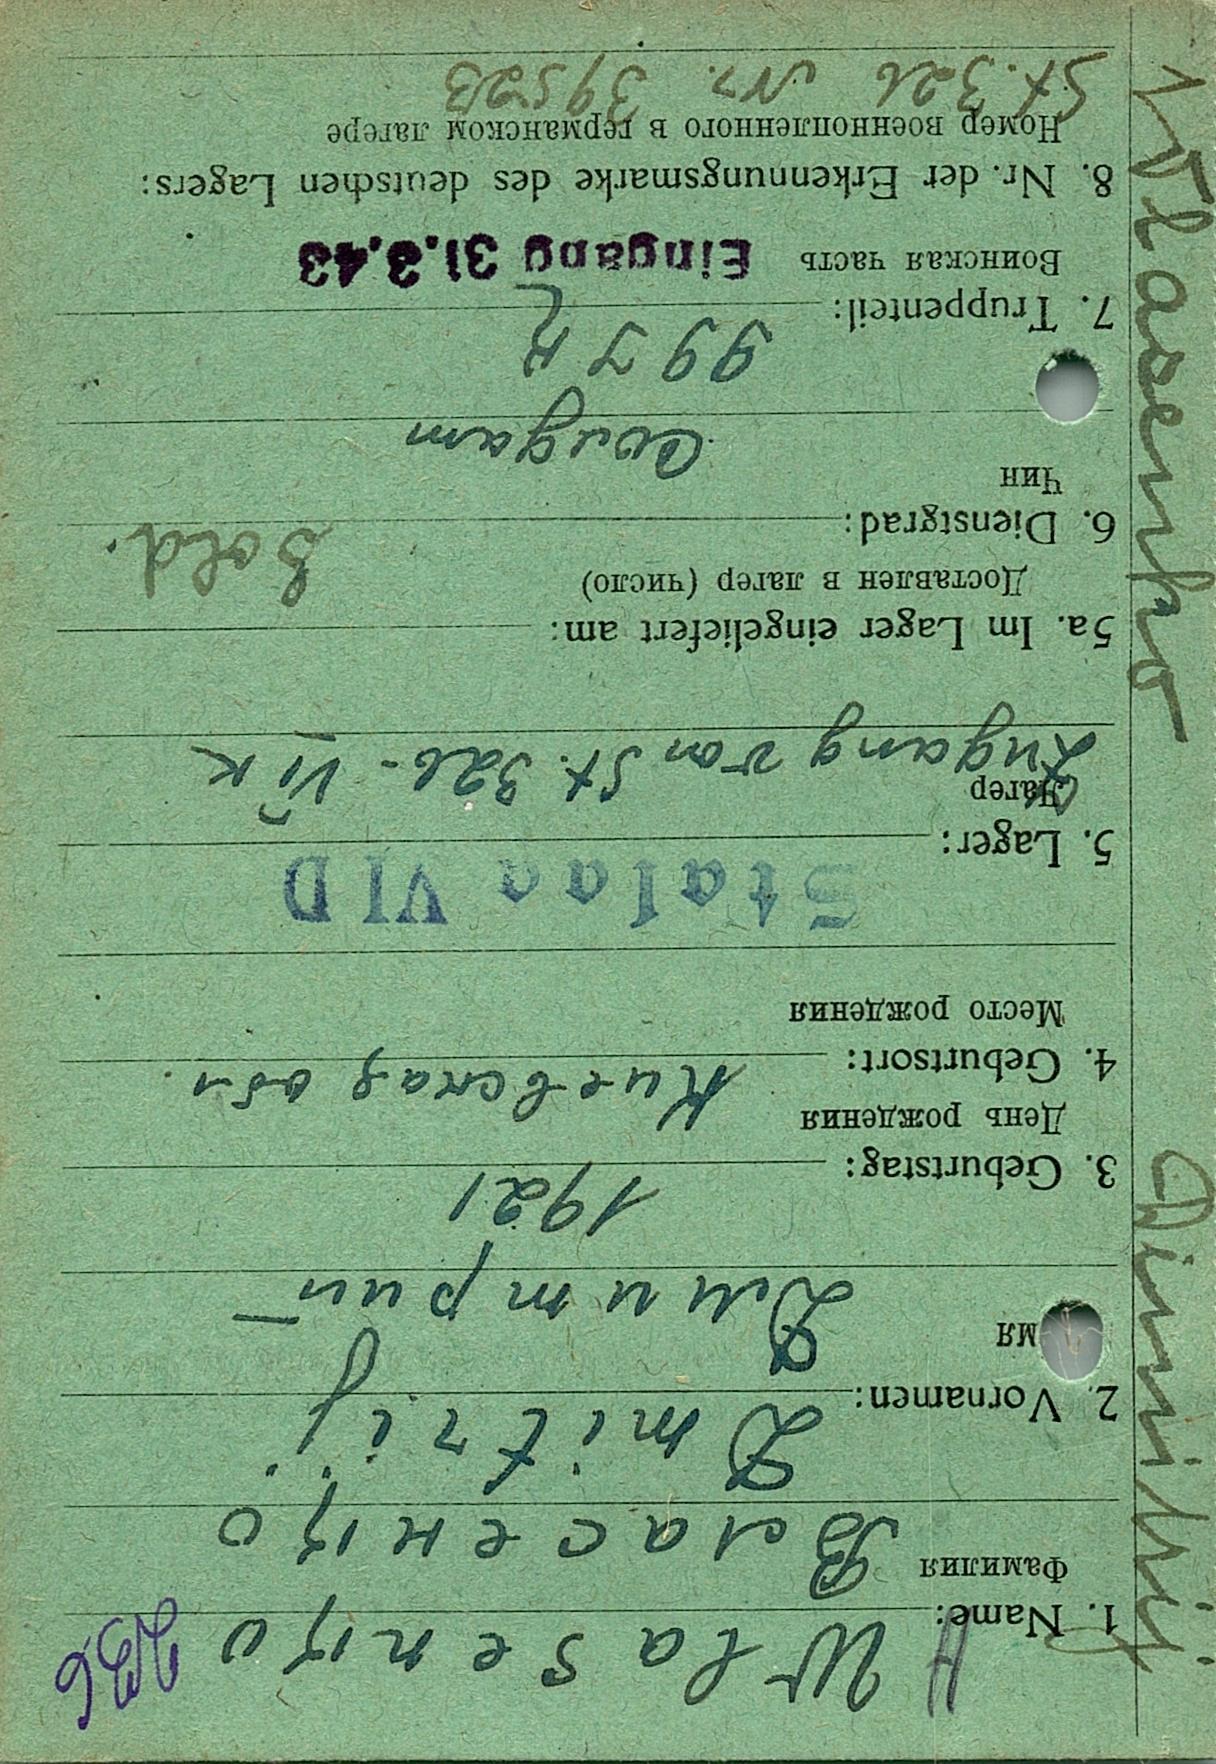 Wlasenko Dimitrij
H Wlasenko
1. Name:
Фамилия Власенко
Dmitrij
2. Vornamen:
мя Димитрий
1921
3. Geburtstag:
День рождения
Киевская обл.
4. Geburtsort:
Место рождения
Stalag VI D
5. Lager:
Лагер
Zugang von St. 326 - VI K
5a. Im Lager eingeliefert am:
Доставлен в лагер (число)
Sold.
6. Dienstgrad:
Чин
Солдат
997
7. Truppenteil:
Воинская часть Eingang 31.3.43
8. Nr. der Erkennungsmarke des deutschen Lagers:
Номер военнопленного в германском лагере
St. 326 Nr. 39523